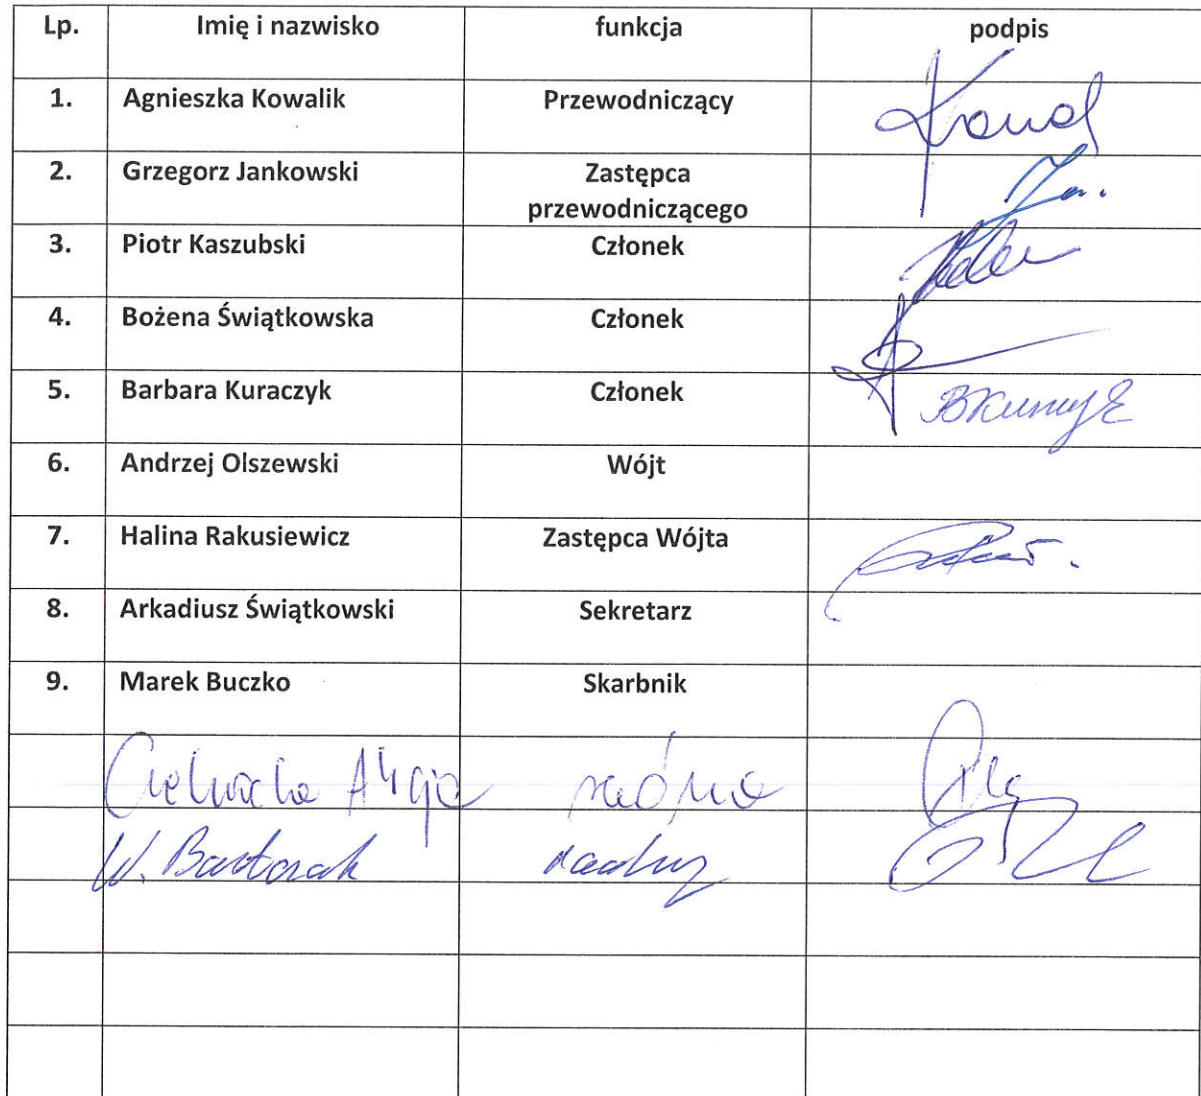 Lp. Imię i nazwisko funkcja podpis
1. Agnieszka Kowalik Przewodniczący
2. Grzegorz Jankowski Zastępca
przewodniczącego
3. Piotr Kaszubski Członek
4. Bożena Świątkowska Członek
5. Barbara Kuraczyk Członek
6. Andrzej Olszewski Wójt
7. Halina Rakusiewicz Zastępca Wójta
8. Arkadiusz Świątkowski Sekretarz
9. Marek Buczko Skarbnik
Alicja radna
W. Bartosak radny